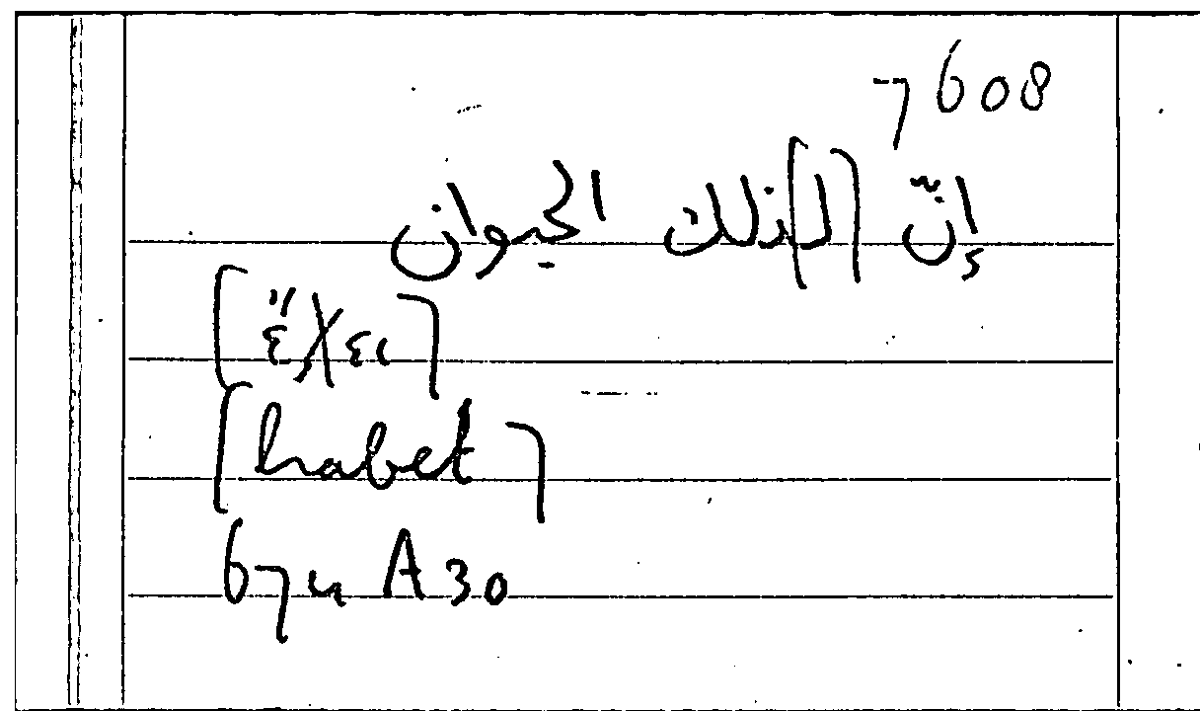 7608
إنّ [ل]ذلك الحيوان
[ἔχει]
[habet]
674 A 30